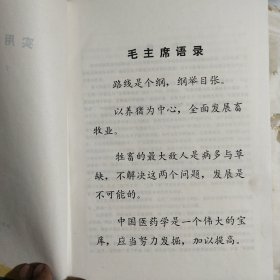 毛主席语录
路线是个纲，纲举目张。
以养猪为中心，全面发展畜
牧业。
牲畜的最大敌人是病多与草
缺，不解决这两个问题，发展是
不可能的。
中国医药学是一个伟大的宝
库，应当努力发掘，加以提高。
实用